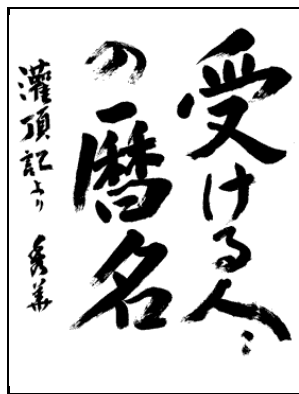 受ける人々
の暦名
灌頂記より 秀華